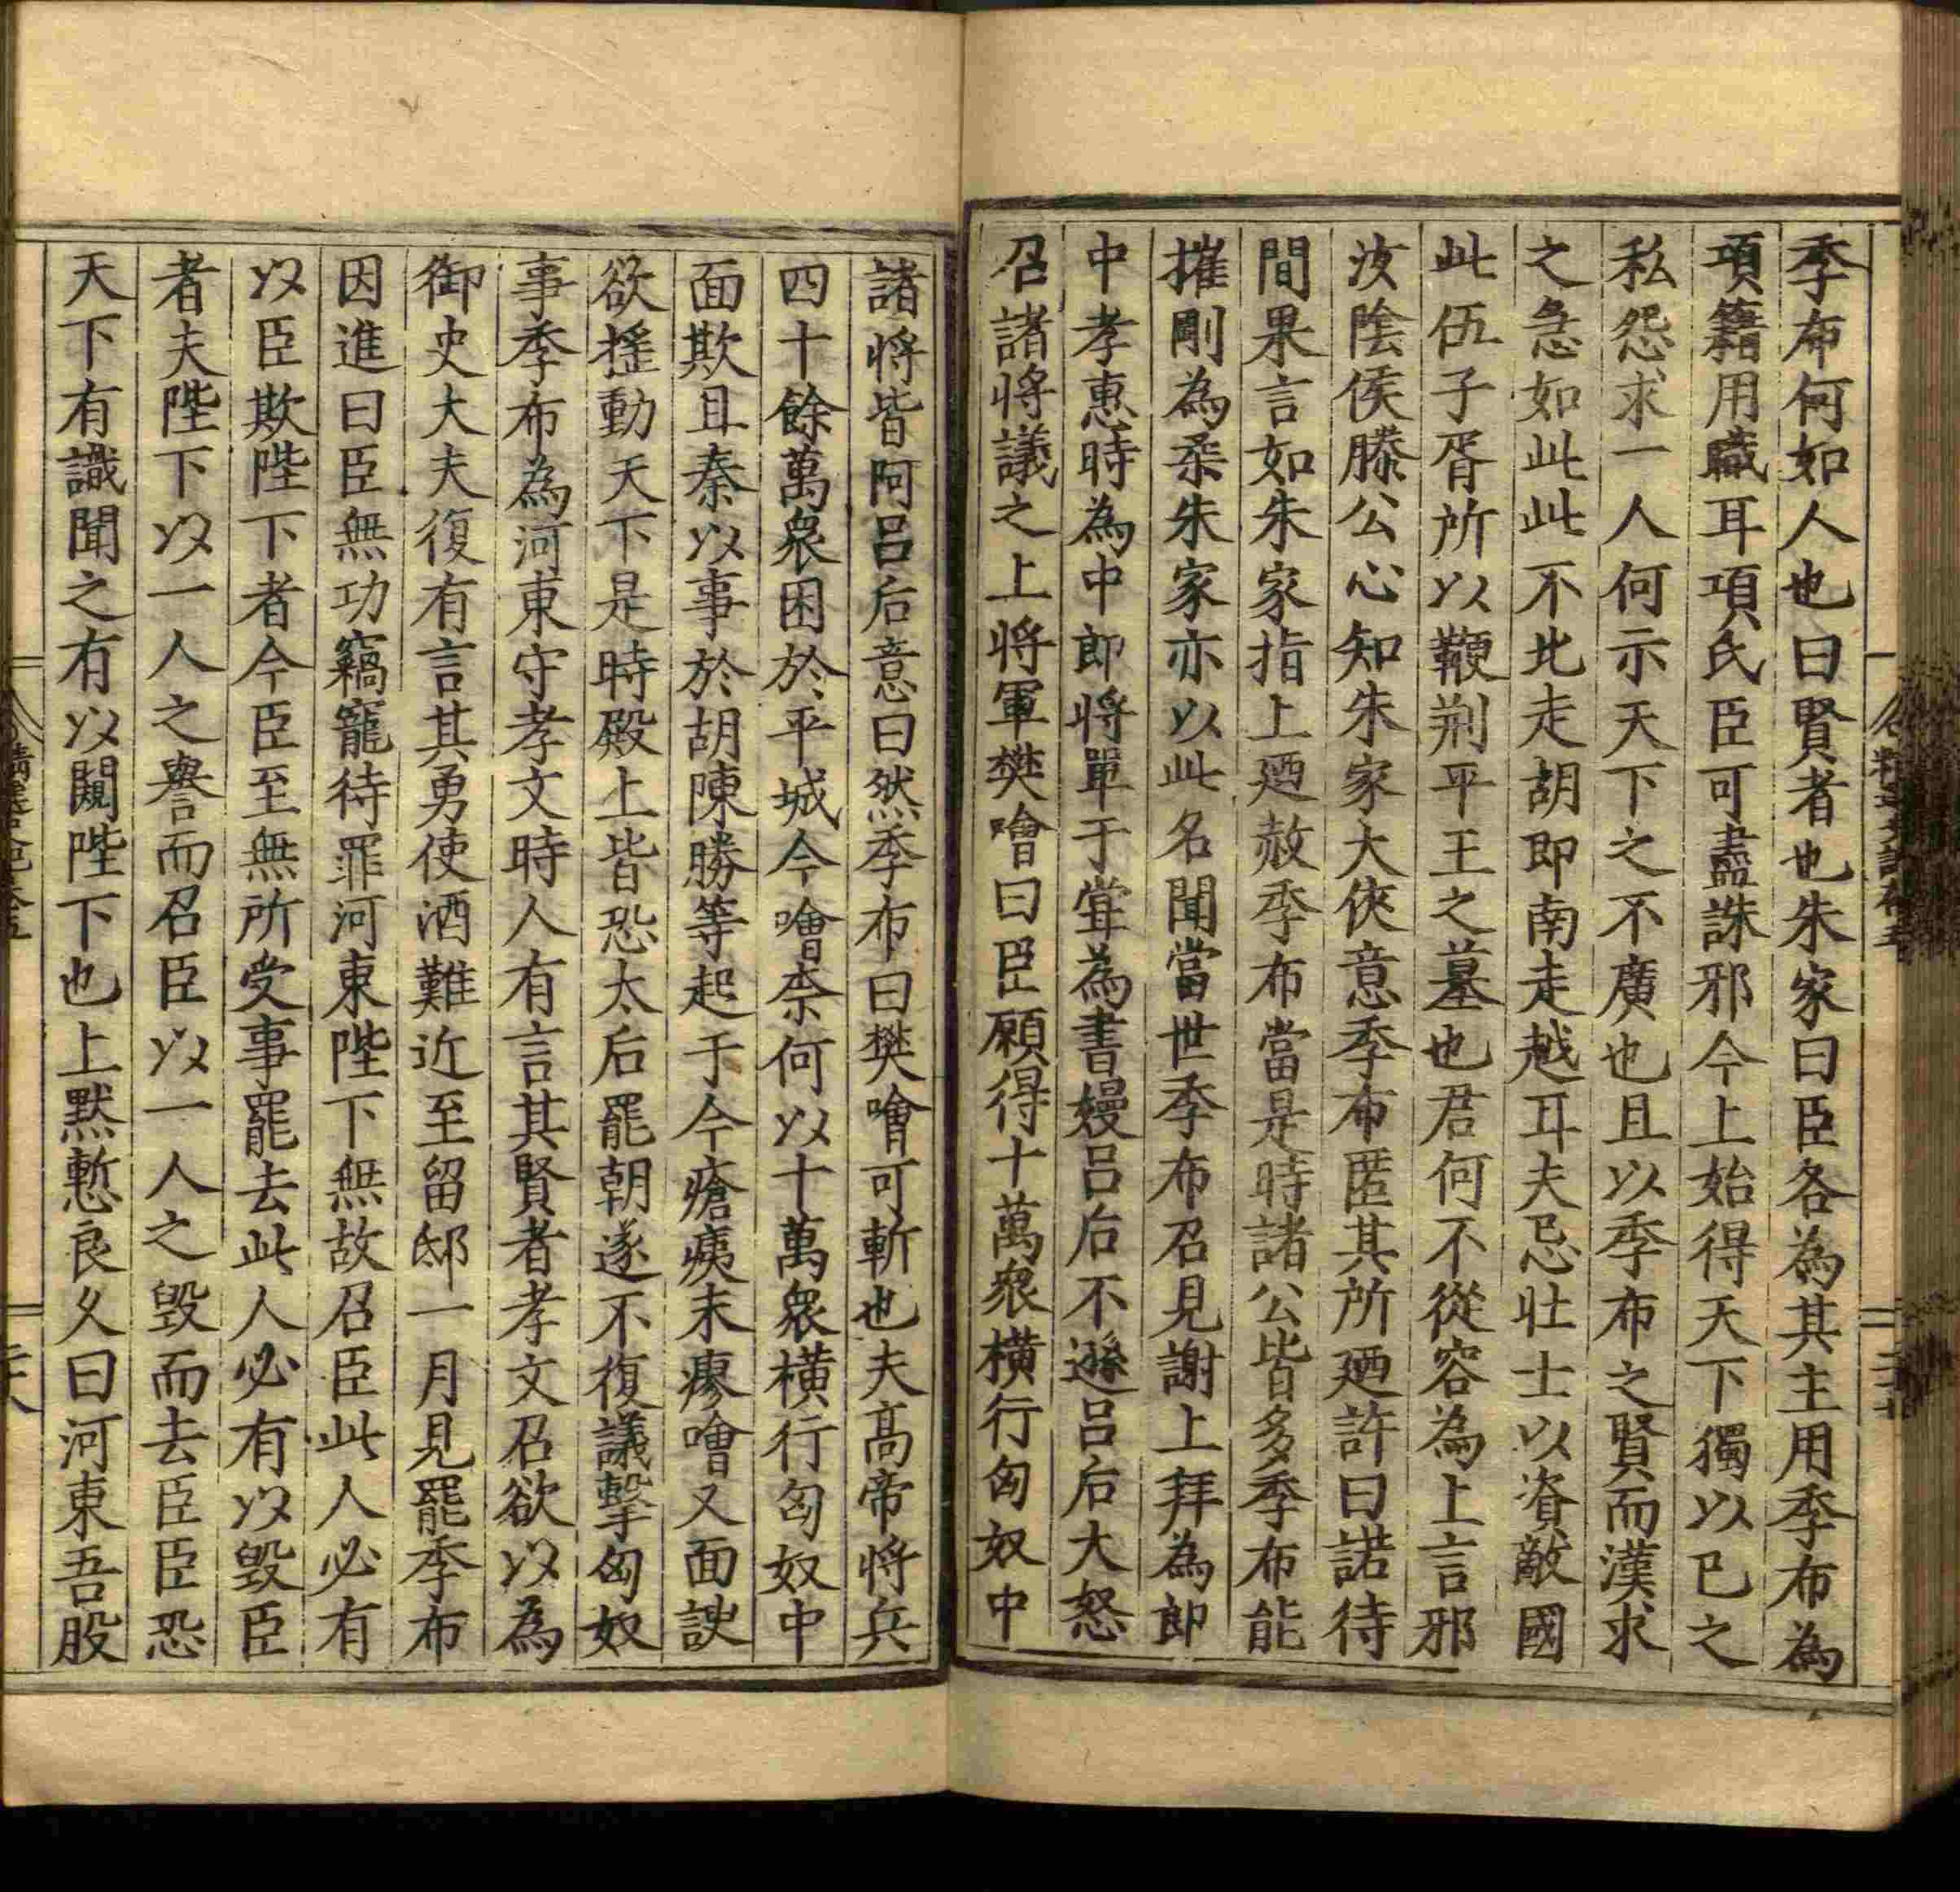 季布何如人也曰賢者也朱家曰臣各為其主用季布為
項籍用職耳項氏臣可盡誅邪今上始得天下獨以已之
私怨求一人何示天下之不廣也且以季布之賢而漢求
之急如此此不北走胡即南走越耳夫忌壯士以資敵國
此伍子胥所以鞭荆平王之墓也君何不從容為上言邪
汝陰侯滕公心知朱家大俠意季布匿其所廼許曰諾待
間果言如朱家指上廼赦季布當是時諸公皆多季布能
摧剛為柔朱家亦以此名聞當世季布召見謝上拜為郎
中孝惠時為中郎將單于甞為書嫚吕后不遜吕后大怒
召諸將議之上將軍樊噲曰臣願得十萬衆橫行匈奴中
諸將皆阿吕后意曰然季布曰樊噲可斬也夫髙帝將兵
四十餘萬衆困於平城今噲柰何以十萬衆橫行匈奴中
面欺且秦以事於胡陳勝等起于今瘡痍未瘳噲又面諛
欲揺動天下是時殿上皆恐太后罷朝遂不復議擊匈奴
事季布為河東守孝文時人有言其賢者孝文召欲以為
御史大夫復有言其勇使酒難近至留邸一月見罷季布
因進曰臣無功竊寵待罪河東陛下無故召臣此人必有
以臣欺陛下者今臣至無所受事罷去此人必有以毁臣
者夫陛下以一人之譽而召臣以一人之毁而去臣臣恐
天下有識聞之有以闚陛下也上黙慙良久曰河東吾股